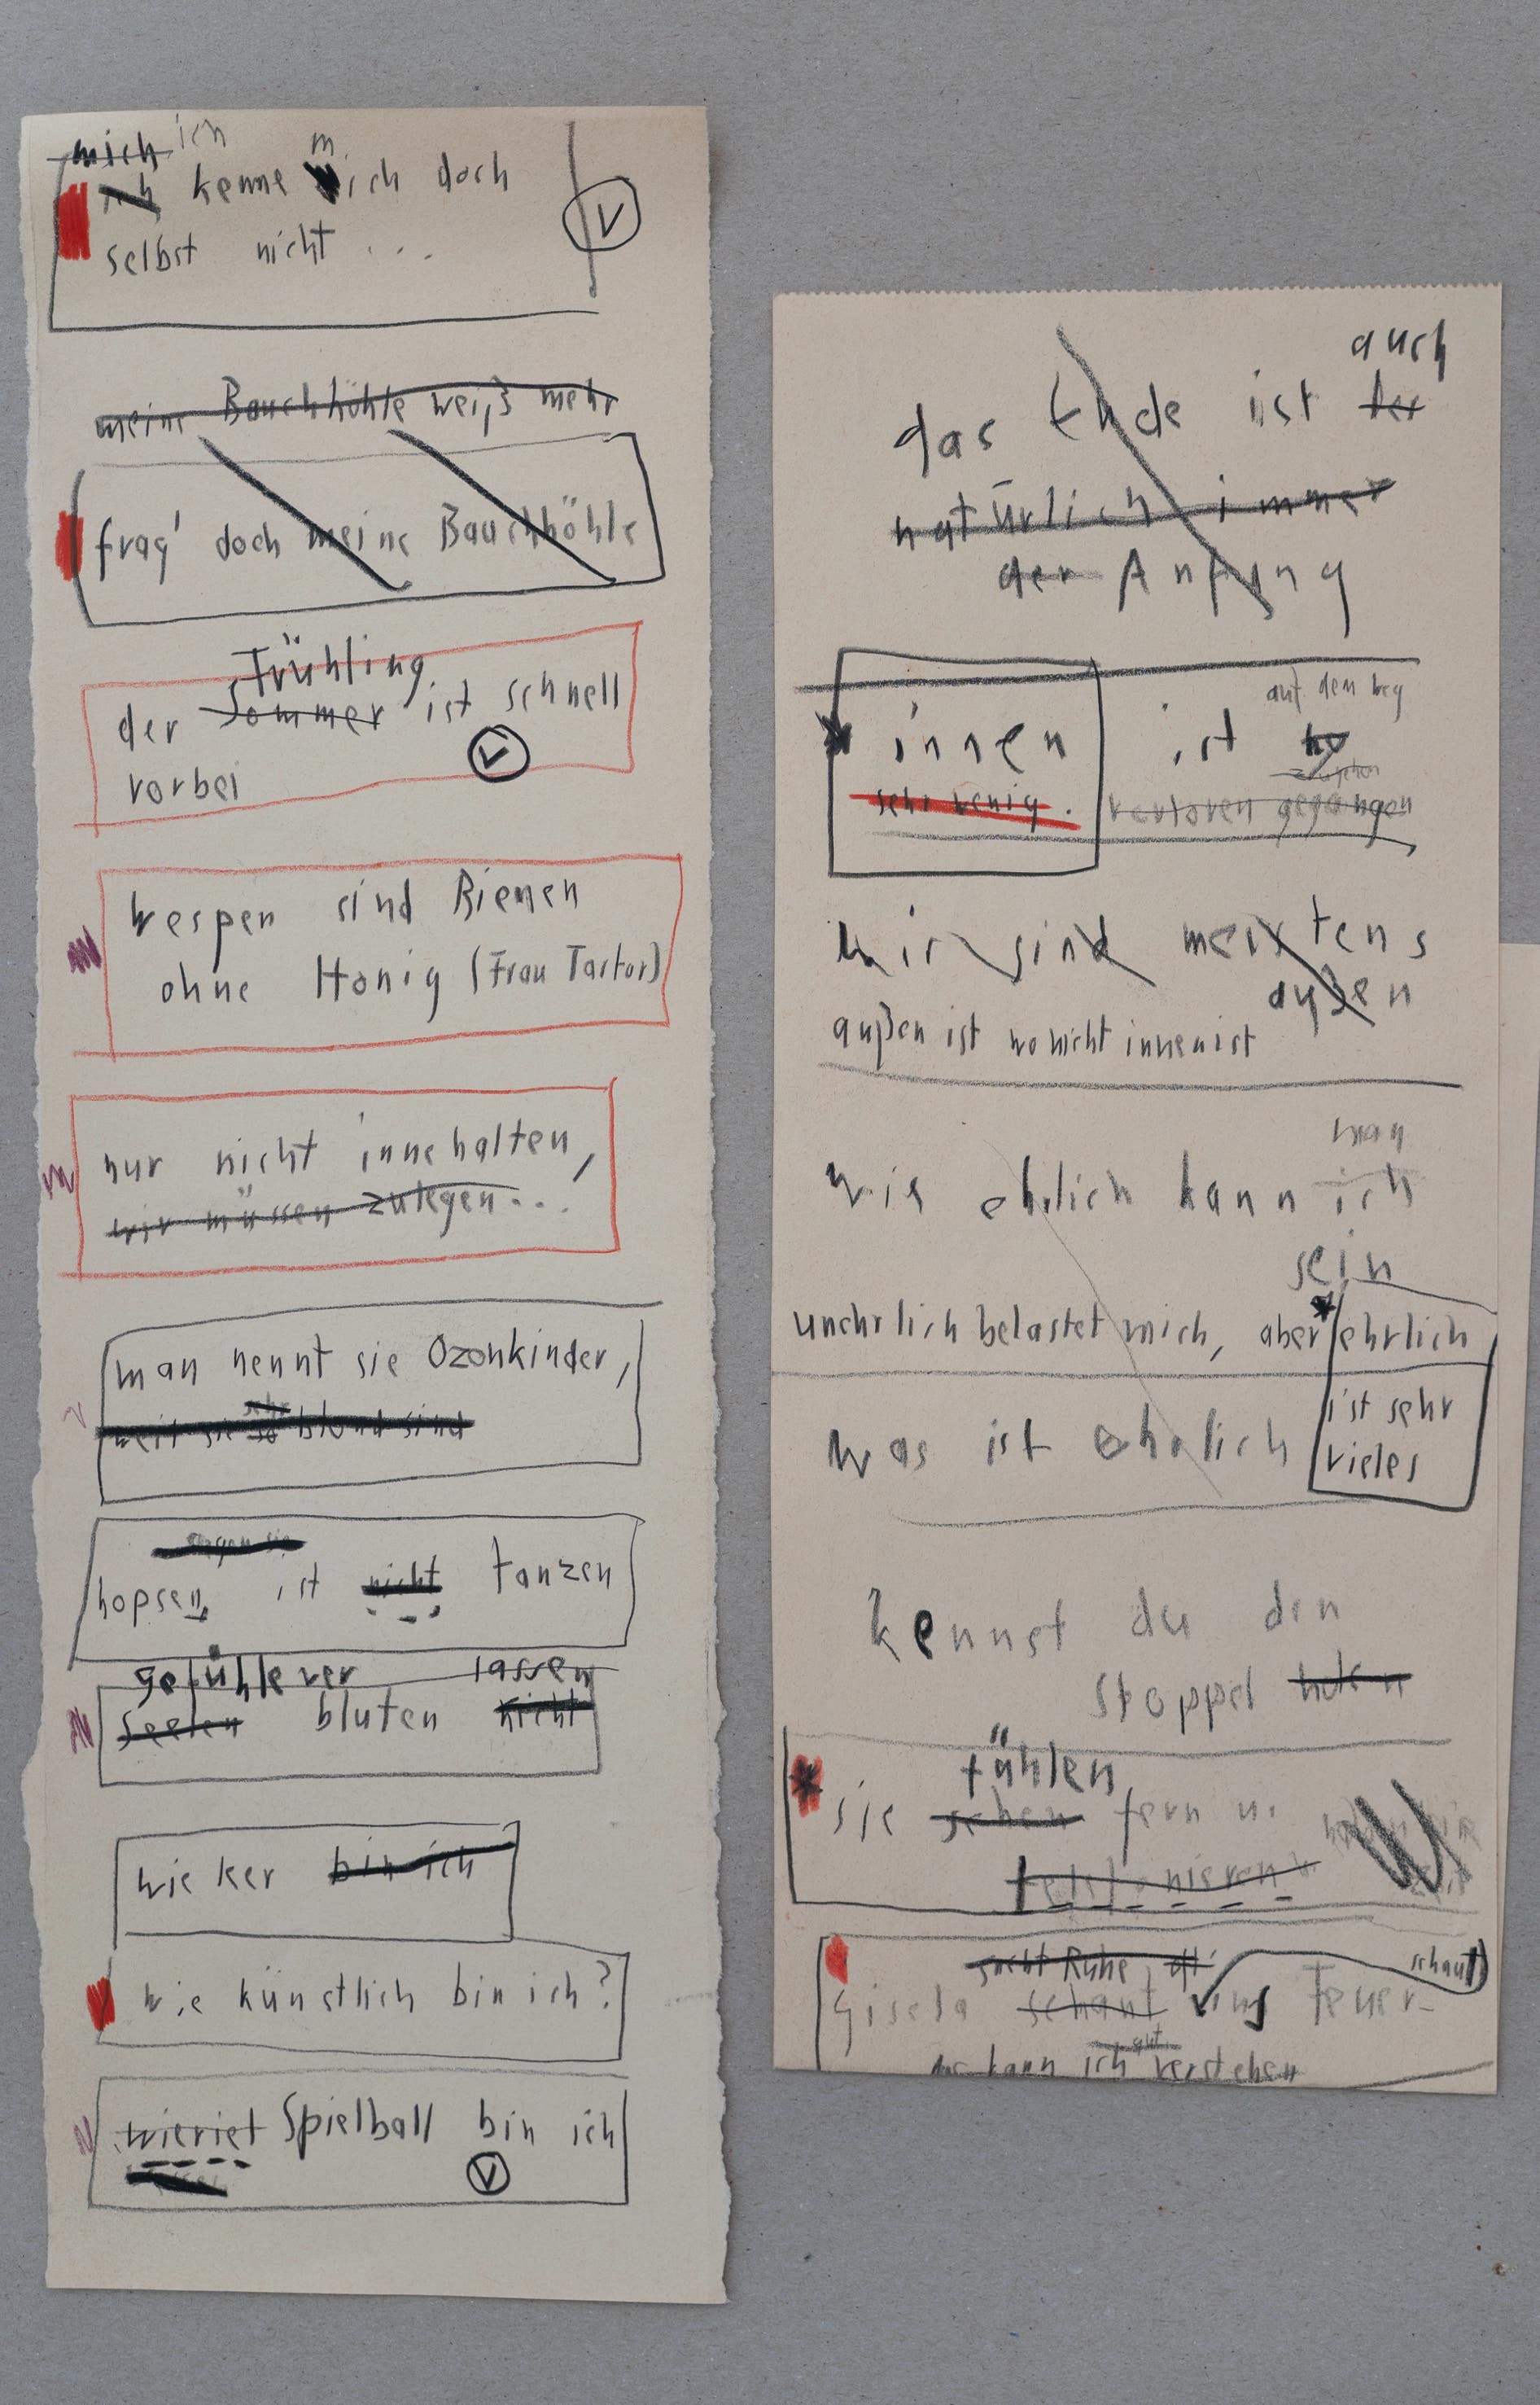 mich ich
ich kenne mich doch
m
selbst nicht ...
V
meine Bauchhöhle weiß mehr
frag' doch meine Bauchhöhle
Frühling
der Sommer ist schnell
vorbei
V
Wespen sind Bienen
ohne Honig (Frau Tartor)
nur nicht innehalten,
wir müssen zulegen...
man nennt sie Ozonkinder,
sehr
weil sie so blond sind
sagen sie
hopsen ist nicht tanzen
gefühle ver lassen
Seelen bluten nicht
wie ker bin ich
wie künstlich bin ich?
wieviel Spielball bin ich
V
auch
das Ende ist der
natürlich immer
der Anfang
auf dem Weg
innen ist
sehr wenig.
verloren gegangen
wir sind meistens
außen
außen ist wo nicht innen ist
man
wie ehrlich kann ich
sein
unehrlich belastet mich, aber ehrlich
was ist ehrlich
ist sehr
vieles
kennst du den
Stoppel
fühlen
sie sehen fern u.
telefonieren
sucht Ruhe
schaut
Gisela schaut ins Feuer-
das kann ich gut verstehen